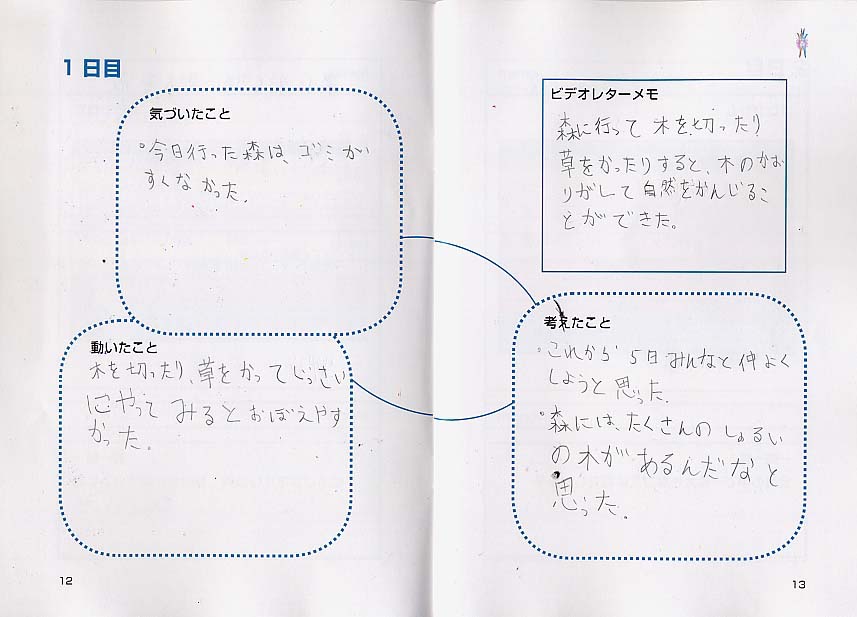 1日目
気づいたこと
・今日行った森は、ゴミが
すくなかった。
動いたこと
木を切ったり、草をかってじっさい
にやってみるとおぼえやす
かった。
12
ビデオレターメモ
森に行って木を切ったり
草をかったりすると、木のかお
りがして自然をかんじるこ
とができた。
考えたこと
・これから5日みんなと仲よく
しようと思った。
・森には、たくさんのしゅるい
の木があるんだなと
思った。
13